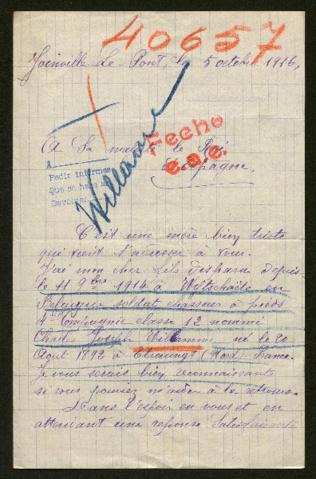 40657
Joinville Le Pont, le 5 octobre 1916,
A Sa majesté le Roi
d'Espagne,
Fecho
A
Pedir informes
Que se hace
Devolver
Willamme
C'est une mère bien triste
qui vient s'adresser à vous.
J'ai mon cher fils disparu depuis
le 11 9bre 1914 à
Belgique soldat chasseur à pieds
4e Compagnie classe 12 nommé
Charles Joseph Willamme né le 20
Aout 1892 à (Nord) France.
Je vous serais bien reconnaissante
si vous pouviez m'aider à le retrouver.
Dans l'espoir en vous et en
attendant une reponse Satisfaisante